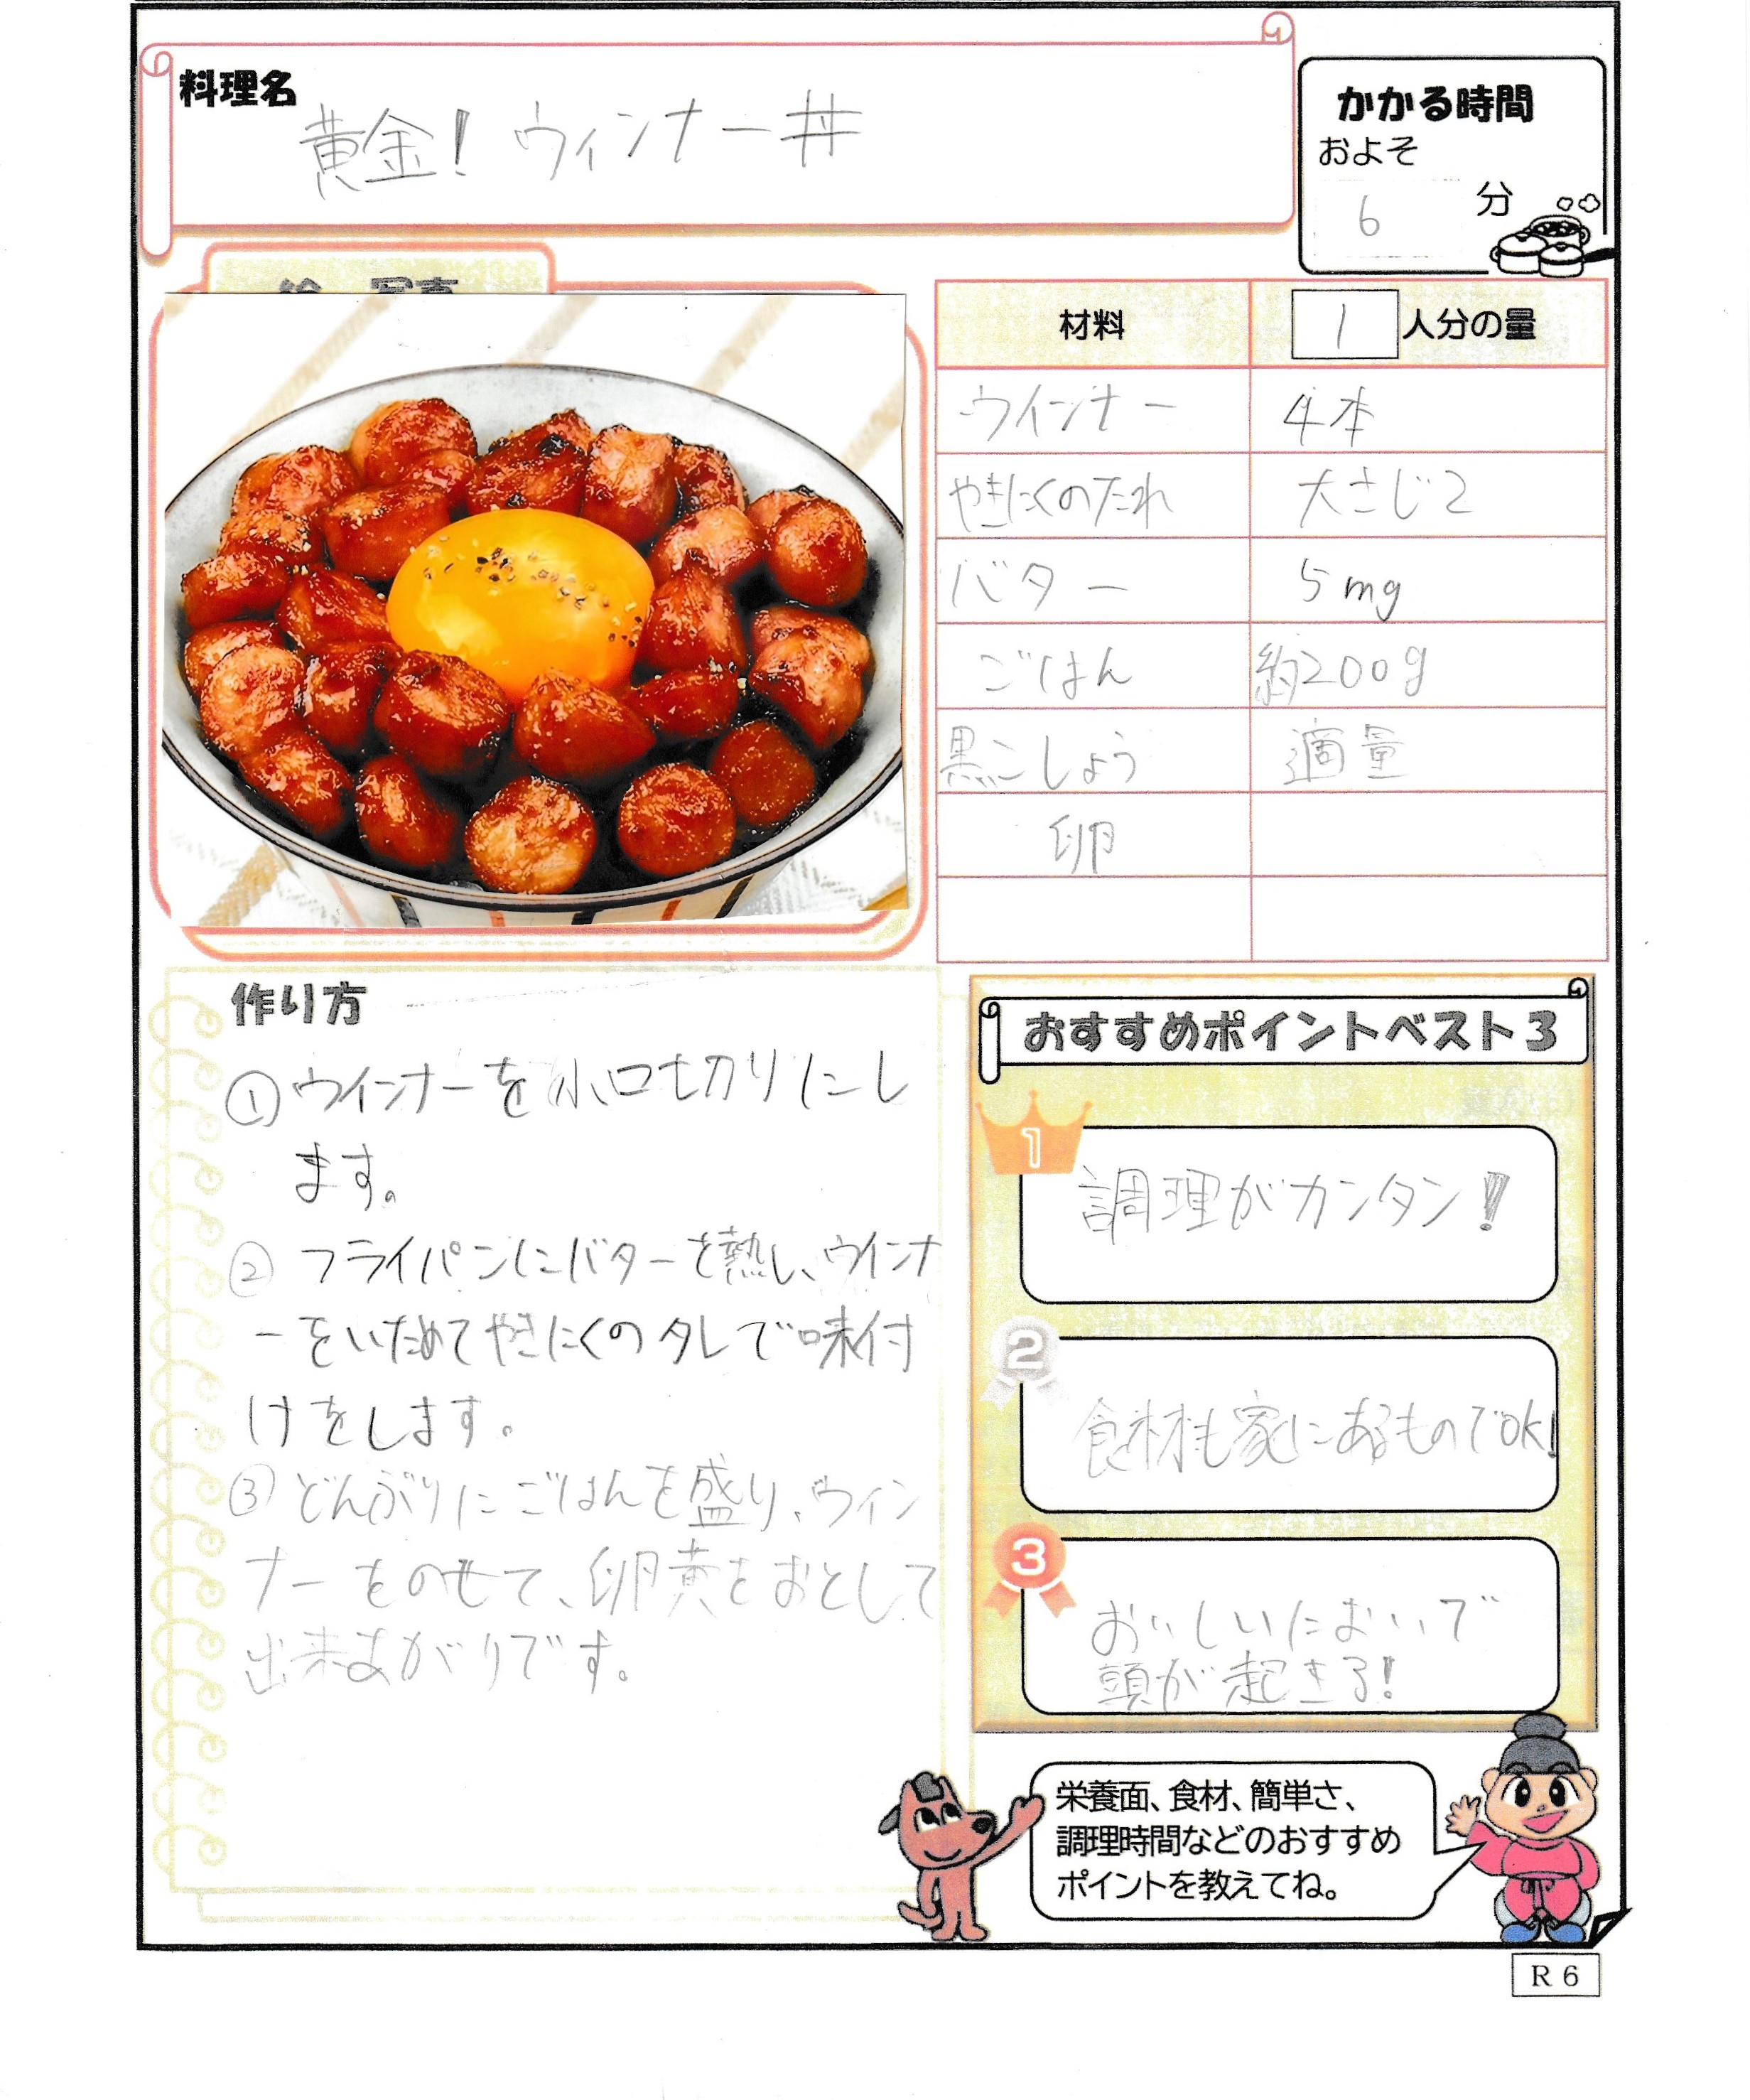 料理名
黄金！ウィンナー丼
かかる時間
およそ
6 分
材料 1 人分の量
ウインナー 4本
やきにくのたれ 大さじ2
バター 5mg
ごはん 約200g
黒こしょう 適量
卵
作り方
①ウインナーを小口切りにし
ます。
②フライパンにバターを熱し、ウインナ
ーをいためてやきにくのタレで味付
けをします。
③どんぶりにごはんを盛り、ウィン
ナーをのせて、卵黄をおとして
出来あがりです。
おすすめポイントベスト3
1
調理がカンタン！
2
食材も家にあるものでOK!
3
おいしいにおいで
頭が起きる！
栄養面、食材、簡単さ、
調理時間などのおすすめ
ポイントを教えてね。
R6